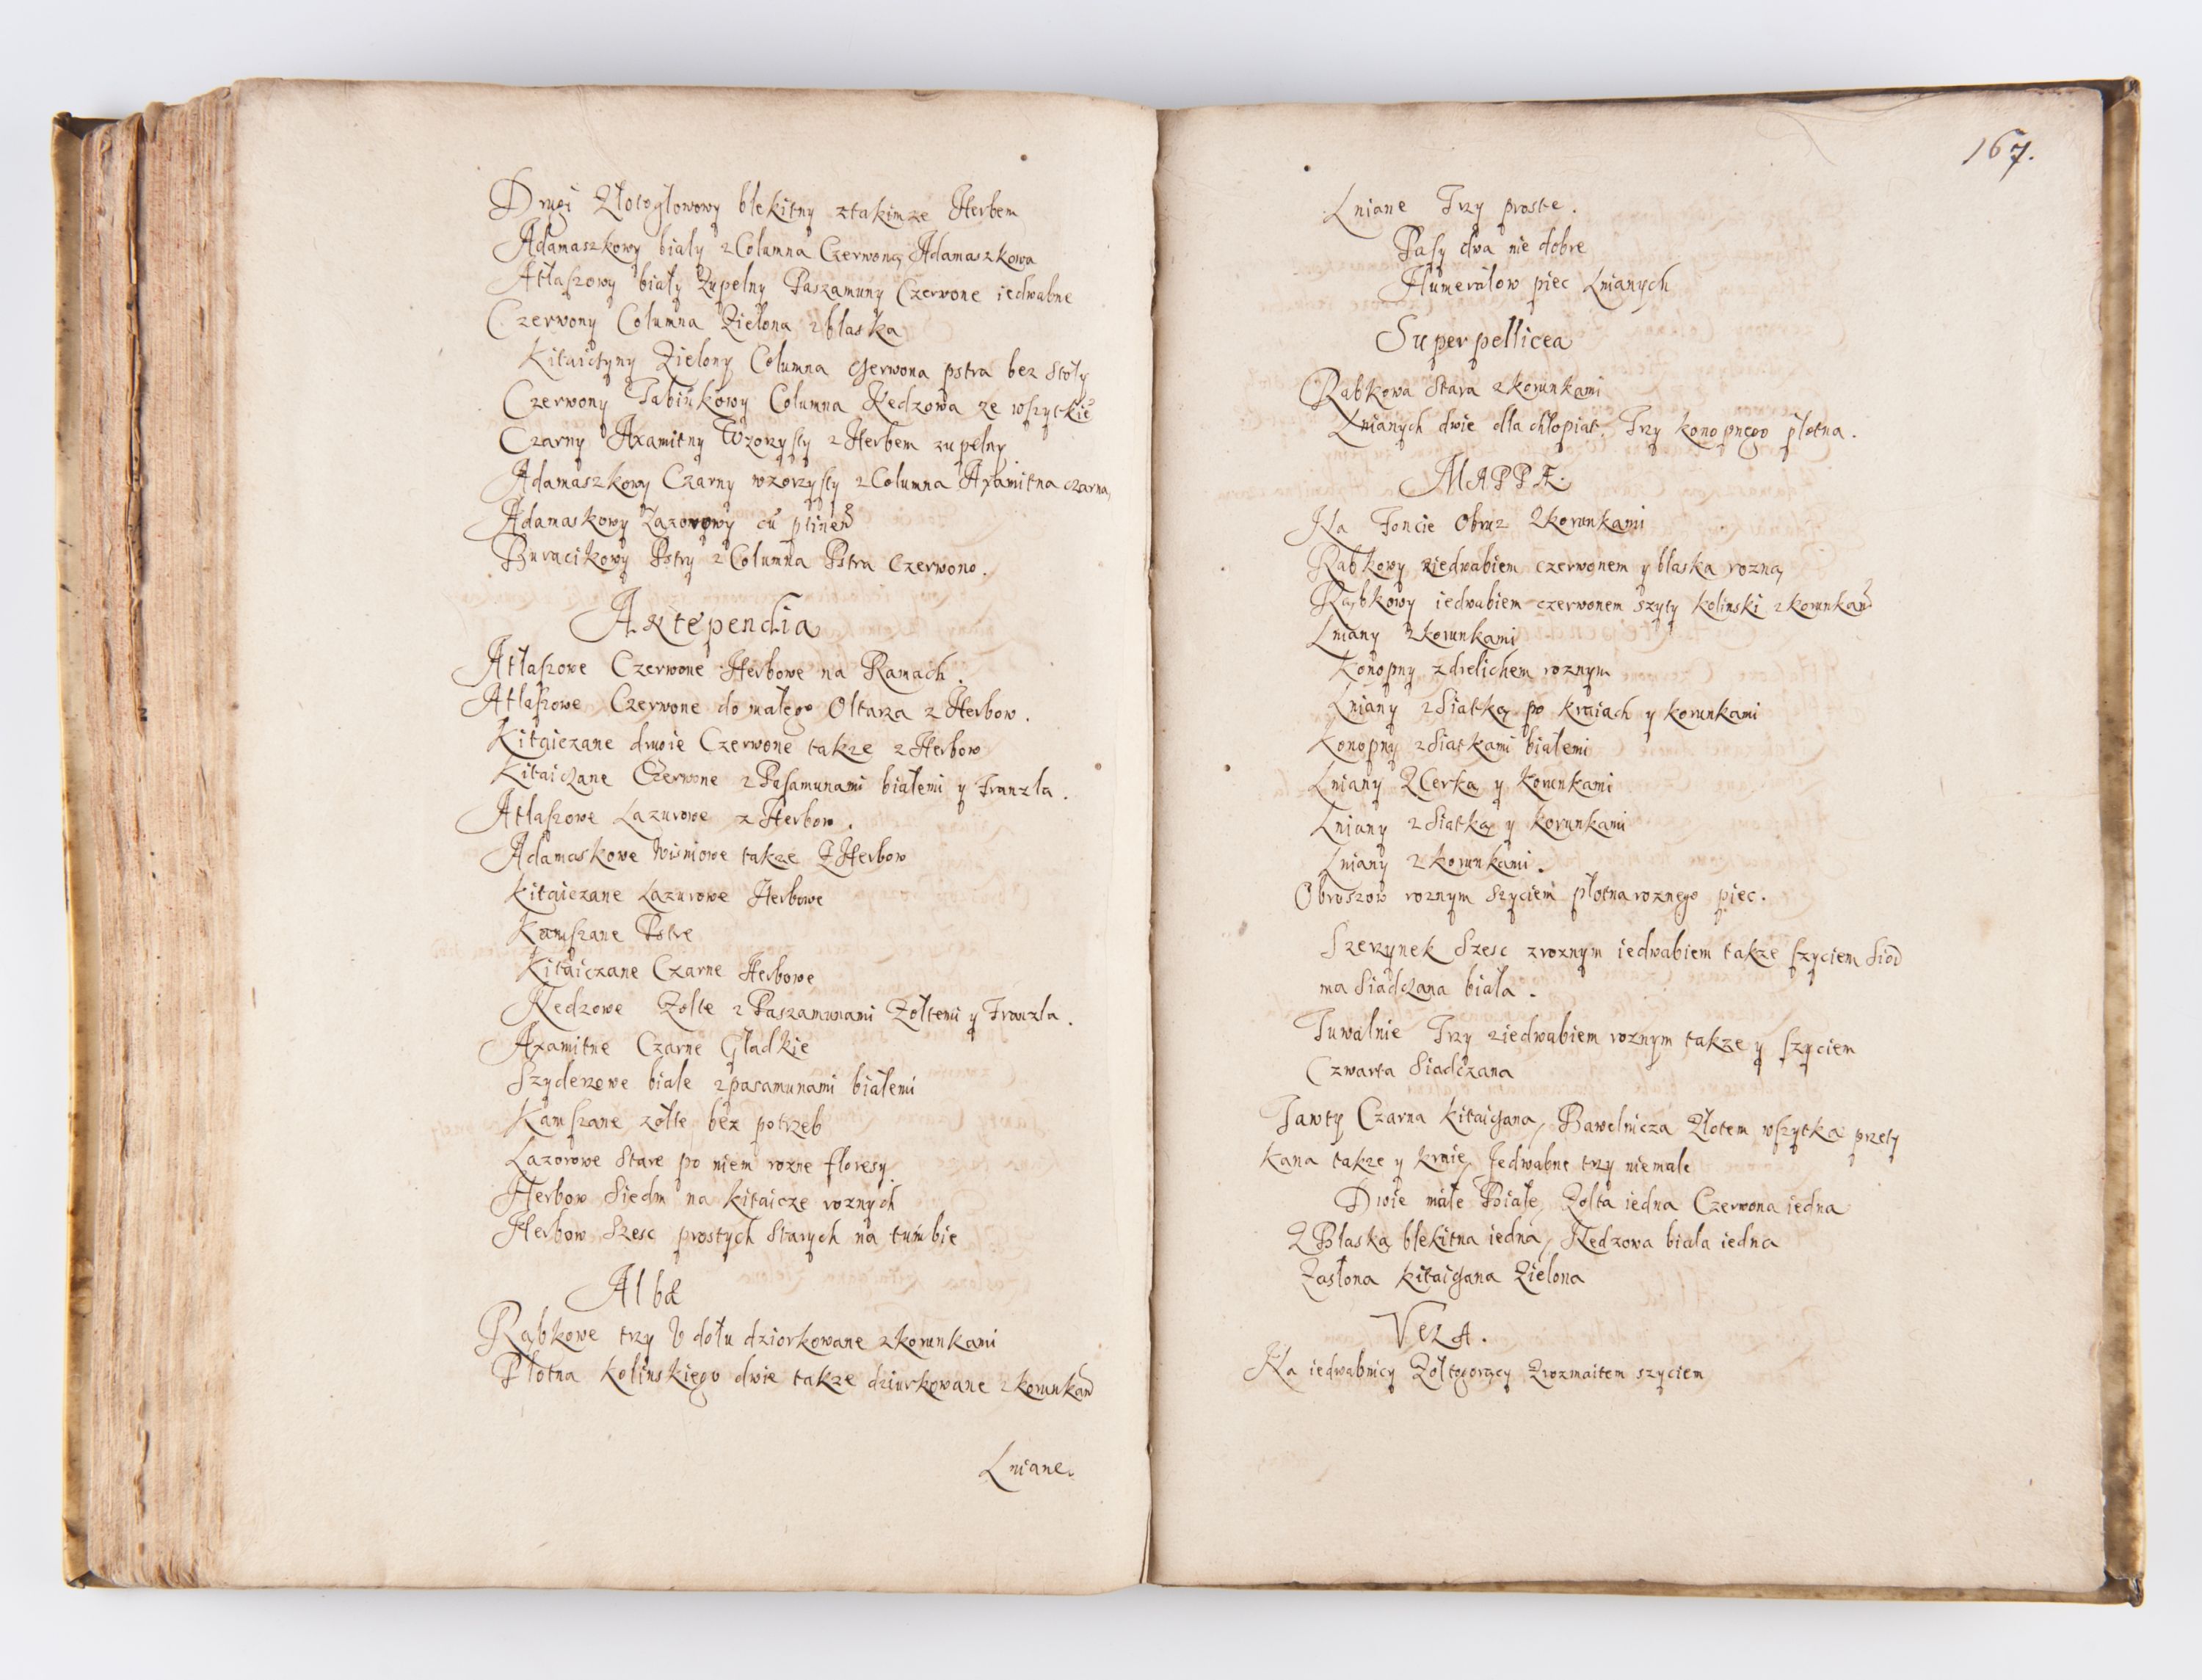 Drugi Złotogłowowy błekitny ztakimze Herbem
Adamaszkowy biały z Columna Czerwoną Adamaszkowa
Atłaszowy biały Zupełny Paszamuny Czerwone iedwabne
Czerwony Columna Zielona z blaska
Kitaiczyny Zielony Columna czerwona pstra bez Stoły
Czerwony Tabinkowy Columna Kedzowa ze wszytkie
Czarny Axamitny Wzorzysty z Herbem zupełny
Adamaszkowy Czarny wzorzysty z Columna Axamitna czarna,
Adamaskowy Lazorowy cu ptinen
Buracikowy Pstry z Columna Pstra Czerwono.
Antependia
Atłaszowe Czerwone Herbowe na Ramach.
Atłaszowe Czerwone do małego Ołtarza z Herbow.
Kitaiczane drugie Czerwone takze z Herbow
Kitaiczane Czerwone z Pasamunami białemi y Franzla.
Atłaszowe Lazurowe z Herbow.
Adamaskowe Wisniowe takze Z Herbow
Kitaiczane Lazurowe Herbowe
Kamszane Pstre
Kitaiczane Czarne Herbowe
Kedzowe Zołte z Paszamunami Zołtemi y Franzla.
Axamitne Czarne Gładkie
Szyderzowe białe z pasamunami białemi
Kamszane zołte bez potrzeb
Lazorowe Stare po niem rozne floresy
Herbow Siedm na kitaicze roznych
Herbow Szesc prostych Starych na tumbie
Albæ
Rąbkowe trzy U dołu dziorkowane z korunkami
Płotna kolinskiego dwie takze dziurkowane z korunkam
Lniane.
167.
Lniane Trzy proste.
Pasy dwa nie dobre
Humerałow piec Lnianych
Superpellicea
Rąbkowa Stara z korunkami
Lnianych dwie dla chłopiat. Trzy konopnego płotna.
MAPPÆ.
Na Foncie Obruz Z korunkami
Rabkowy ziedwabiem czerwonem y blaska rozną
Rąbkowy iedwabiem czerwonem szyty kolinski z korunkam
Lniany z korunkami
Konopny z drelichem roznym
Lniany z Siatką po kraiach y korunkami
Konopny z Siatkami białemi
Lniany Z Cerka y korunkami
Lniany z Siatką y korunkami
Lniany z korunkami.
Obroszow roznym szyciem płotna roznego piec.
Szerzynek Szesc z roznym iedwabiem takze szyciem Siod
ma Siadczana biała.
Tuwalnie Trzy ziedwabiem roznym takze y szyciem
Czwarta Siadczana
Tawty Czarna kitaiczana, Bawelnicza Złotem wszytka przety
kana takze y kraie, Jedwabne trzy niemałe
Dwie małe Białe, Zołta iedna Czerwona iedna
Z Blaską błekitna iedna, Kedzowa biała iedna
Zasłona kitaiczana Zielona
VelA.
Na iedwabnicy Zołtogorący Z rozmaitem szyciem